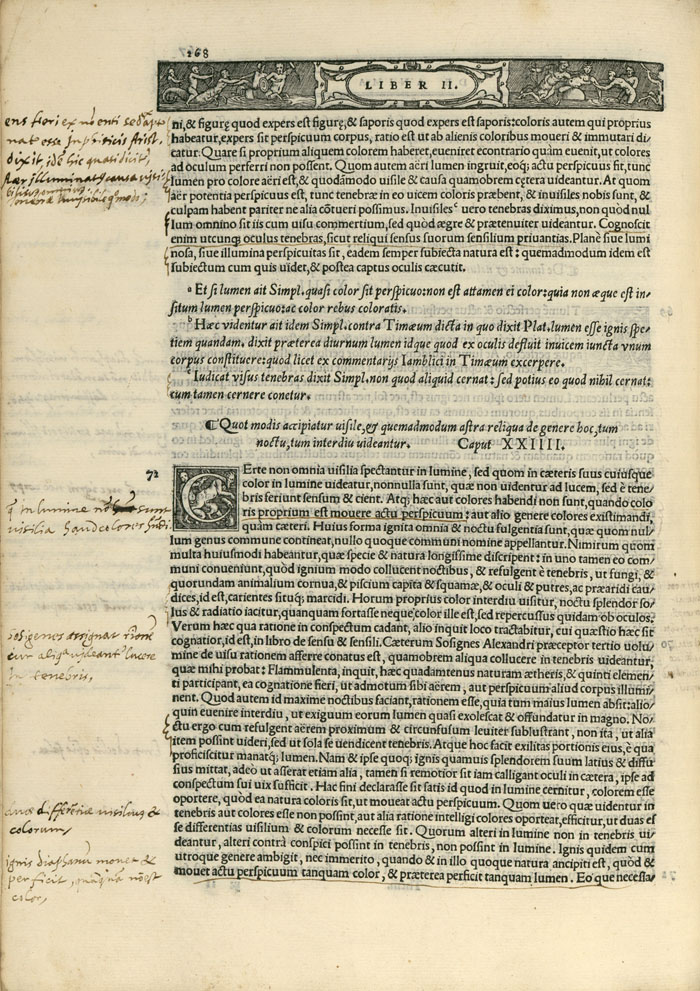 168
LIBER II.
ni, & figuræ quod expers est figuræ, & saporis quod expers est saporis: coloris autem qui proprius
habeatur, expers sit perspicuum corpus, ratio est ut ab alienis coloribus moueri & immutari di/
catur. Quare si proprium aliquem colorem haberet, eueniret econtrario quàm euenit, ut colores
ad oculum perferri non possent. Quom autem aëri lumen ingruit, eoq; actu perspicuus fit, tunc
lumen pro colore aëri est, & quodámodo uisile & causa quamobrem cętera uideantur. At quom
aër potentia perspicuus est, tunc tenebræ in eo uicem coloris præbent, & inuisiles nobis sunt, &
culpam habent pariter ne alia cõtueri possimus. Inuisiles c uero tenebras diximus, non quòd nul
lum omnino sit iis cum uisu commertium, sed quòd ægre & prætenuiter uideantur. Cognoscit
enim utcunq; oculus tenebras, sicut reliqui sensus suorum sensilium priuantias. Planè siue lumi
nosa, siue illumina perspicuitas sit, eadem semper subiecta natura est: quemadmodum idem est
subiectum cum quis uidet, & postea captus oculis cæcutit.
a Et si lumen ait Simpl. quasi color sit perspicuo: non est attamen ei color: quia non æque est in/
situm lumen perspicuo: ac color rebus coloratis.
b Hæc videntur ait idem Simpl. contra Timæum dicta in quo dixit Plat. lumen esse ignis spe/
tiem quandam. dixit præterea diurnum lumen idque quod ex oculis defluit inuicem iuncta vnum
corpus constituere: quod licet ex commentarijs Iamblici in Timæum excerpere.
c Iudicat visus tenebras dixit Simpl. non quod aliquid cernat: sed potius eo quod nihil cernat:
cum tamen cernere conetur.
Quot modis accipiatur uisile, & quemadmodum astra reliqua de genere hoc, tum
noctu, tum interdiu uideantur. Caput XXIIII.
72
CErte non omnia uisilia spectantur in lumine, sed quom in cæteris suus cuiusque
color in lumine uideatur, nonnulla sunt, quæ non uidentur ad lucem, sed è tene/
bris seriunt sensum & cient. Atq; hæc aut colores habendi non sunt, quando colo
ris proprium est mouere actu perspicuum: aut alio genere colores existimandi,
quàm cæteri. Huius forma ignita omnia & noctu fulgentia sunt, quæ quom nul/
lum genus commune contineat, nullo quoque communi nomine appellantur. Nimirum quom
multa huiusmodi habeantur, quæ specie & natura longissime discripent: in uno tamen eo com/
muni conueniunt, quòd ignium modo collucent noctibus, & refulgent è tenebris, ut fungi, &
quorundam animalium cornua, & piscium capita & squamæ, & oculi & putres, ac præaridi cau/
dices, id est, carientes situq; marcidi. Horum proprius color interdiu uisitur, noctu splendor so/
lus & radiatio iacitur, quanquam fortasse neque color ille est, sed repercussus quidam ob oculos.
Verum hæc qua ratione in conspectum cadant, alio inquit loco tractabitur, cui quæstio hæc sit
cognatior, id est, in libro de sensu & sensili. Cæterum Sosignes Alexandri præceptor tertio uolu/
mine de uisu rationem afferre conatus est, quamobrem aliqua collucere in tenebris uideantur,
quæ mihi probat: Flammulenta, inquit, hæc quadamtenus naturam ætheris, & quinti elemen/
ti participant, ea cognatione fieri, ut admotum sibi aërem, aut perspicuum aliud corpus illumi/
nent. Quod autem id maxime noctibus faciant, rationem esse, quia tum maius lumen absit: alio/
quin euenire interdiu, ut exiguum eorum lumen quasi exolescat & offundatur in magno. No/
ctu ergo cum resulgent aërem proximum & circunfusum leuiter sublustrant, non ita, ut alia
item possint uideri, sed ut sola se uendicent tenebris. Atque hoc facit exilitas portionis eius, è qua
proficiscitur manatq; lumen. Nam & ipse quoq; ignis quamuis splendorem suum latius & diffu
sius mittat, adeò ut asserat etiam alia, tamen si remotior sit iam calligant oculi in cætera, ipse ad
conspectum sui uix sufficit. Hac fini declarasse sit satis id quod in lumine cernitur, colorem esse
oportere, quòd ea natura coloris sit, ut moueat actu perspicuum. Quom uero quæ uidentur in
tenebris aut colores esse non possint, aut alia ratione intelligi colores oporteat, efficitur, ut duas es
se differentias uisilium & colorum necesse sit. Quorum alteri in lumine non in tenebris ui/
deantur, alteri contrà conspici possint in tenebris, non possint in lumine. Ignis quidem cum
utroque genere ambigit, nec immerito, quando & in illo quoque natura ancipiti est, quòd &
mouet actu perspicuum tanquam color, & præterea perficit tanquam lumen. Eo que necessa/
dixit, idē hic
in lumine
sunt
visilia
in tenebris.
differentiæ visiliū &
colorum
ignis diaphanū mouet &
perficit
color